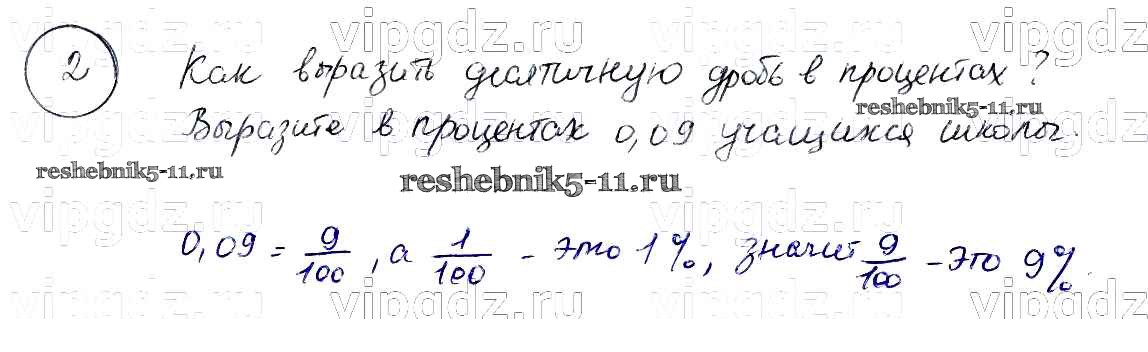 vipgdz.ru vipgdz.ru vipgdz.ru vipgdz.ru
2 Как выразить десятичную дробь в процентах?
reshebnik5-11.ru
Выразите в процентах 0,09 учащихся школы.
vipgdz.ru vipgdz.ru vipgdz.ru vipgdz.ru
reshebnik5-11.ru
reshebnik5-11.ru
vipgdz.ru vipgdz.ru vipgdz.ru vipgdz.ru
0,09 = 9/100, а 1/100 - это 1%, значит 9/100 - это 9%.
vipgdz.ru vipgdz.ru vipgdz.ru vipgdz.ru